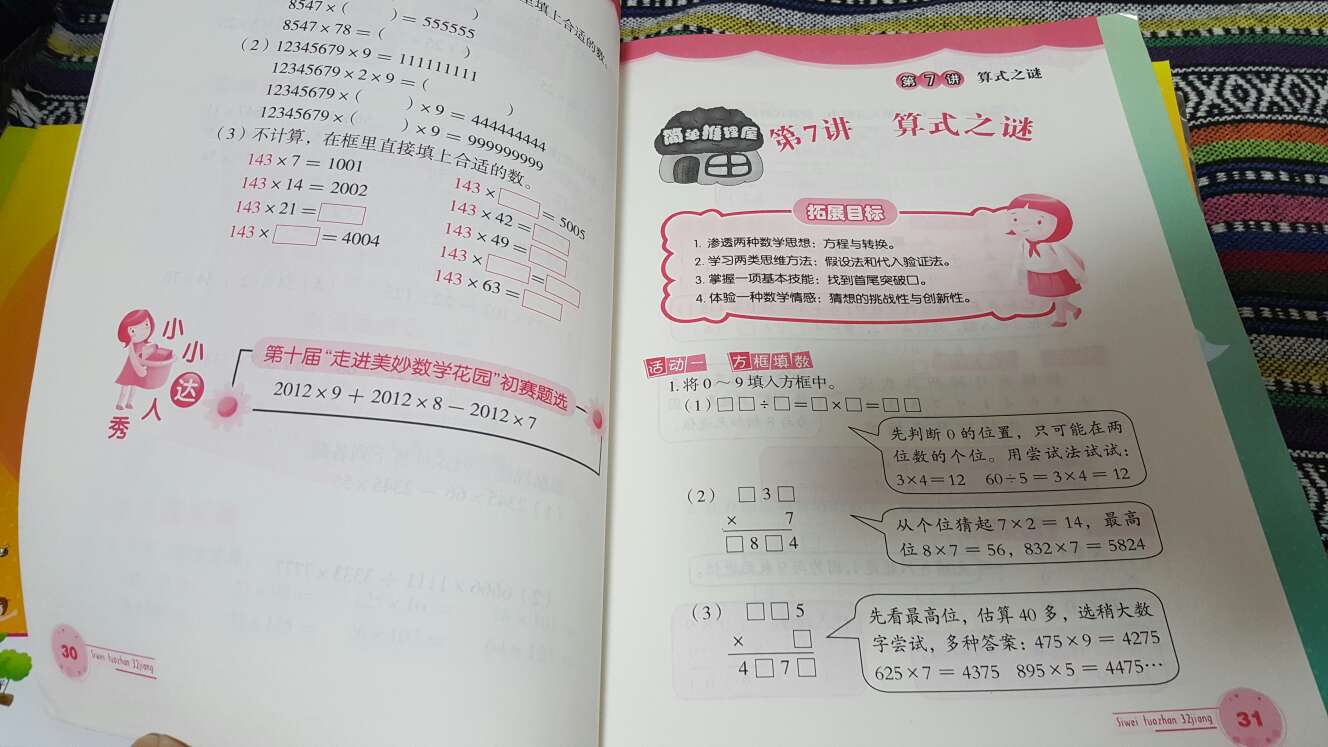 里填上合适的数。
8547×(　　)=555555
8547×78=(　　)
(2) 12345679×9=111111111
12345679×2×9=(　　)
12345679×(　　)×9=444444444
12345679×(　　)×9=999999999
(3) 不计算，在框里直接填上合适的数。
143×7=1001
143×14=2002
143×21=□
143×□=4004
143×□=5005
143×42=□
143×49=□
143×□=□
143×63=□
小小达人秀
第十届“走进美妙数学花园”初赛题选
2012×9+2012×8-2012×7
30
Siwei tuozhan 32jiang
第7讲 算式之谜
简单推理屋
第7讲 算式之谜
拓展目标
1. 渗透两种数学思想：方程与转换。
2. 学习两类思维方法：假设法和代入验证法。
3. 掌握一项基本技能：找到首尾突破口。
4. 体验一种数学情感：猜想的挑战性与创新性。
活动一 方框填数
1. 将0～9填入方框中。
(1) □□÷□=□×□=□□
先判断0的位置，只可能在两
位数的个位。用尝试法试试：
3×4=12 60÷5=3×4=12
(2) □3□
× 7
□8□4
从个位猜起7×2=14，最高
位8×7=56，832×7=5824
(3) □□5
× □
4□7□
先看最高位，估算40多，选稍大数
字尝试，多种答案：475×9=4275
625×7=4375 895×5=4475…
Siwei tuozhan 32jiang
31